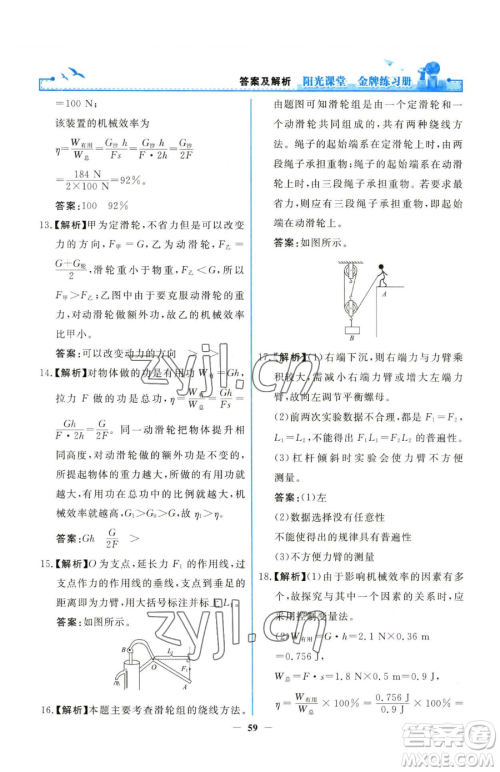 答案及解析 阳光课堂 金牌练习册
=100 N;
该装置的机械效率
η=W有用/W总=G沙h/Fs=G沙h/F·2h=G沙/2F
=184 N/2×100 N=92%。
答案:100 92%
13.【解析】甲为定滑轮,不省力但是可以改变
力的方向,F甲=G,乙为动滑轮,F乙=
G+G轮/2,滑轮重小于物重,F乙<G,所以
F甲>F乙;乙图中由于要克服动滑轮的重
力,对动滑轮做额外功,故乙的机械效率
比甲小。
答案:可以改变动力的方向 >
14.【解析】对物体做的功是有用功W有=Gh,
拉力F做的功是总功,η=W有用/W总=Gh/F·2h
=G/2F。同一动滑轮把物体提升相
同高度,对动滑轮做的额外功是相同的,
所以提起物体的重力越大,所做的有用功
越大,有用功在总功中的比例就越大,机
械效率就越高,G1>G2,故η1>η2。
答案:Gh G/2F >
15.【解析】O为支点,延长力F1的作用线,过
支点作力的作用线的垂线段,支点到垂足
的距离即为力臂,用大括号标注并标上L1。
答案:如图所示。
16.【解析】本题主要考查滑轮组的绕线方法。
由题图可知滑轮组是由一个定滑轮和一
个动滑轮共同组成的,共有两种绕线方
式。绳子的起始端系在定滑轮上,则应有
两段绳子承担重物。绳子的起始端系在
动滑轮上,有三段绳子承担重物。又因为
最省力,所以应有三段绳子承担重物,起始
端在动滑轮上。
答案:如图所示。
B
A
17.【解析】(1)右端下沉,则右端力与力臂乘
积较大,需减小力或减小力臂,应向左
调节。
(2)前两次实验数据不合理,都是F1=F2,
L1=L2,不能得出F1L1=F2L2的结论。
(3)杠杆倾斜时实验会使力臂不方便
测量。
答案:(1)左
(2)实验数据选择没有任意性
不能使得到的结论具有普遍性
(3)不方便力臂的测量
18.【解析】(1)由于影响机械效率的因素有多
个,故探究与其中一个因素的关系时,应
采用控制变量法。
(2)W有用=G·h=2.1 N×0.36 m
=0.756 J,
W总=F·s=2.5 N×0.36 m=0.9 J,
η=W有用/W总×100%=0.756 J/0.9 J×100%
59
zyjl.cn
zyjl.cn